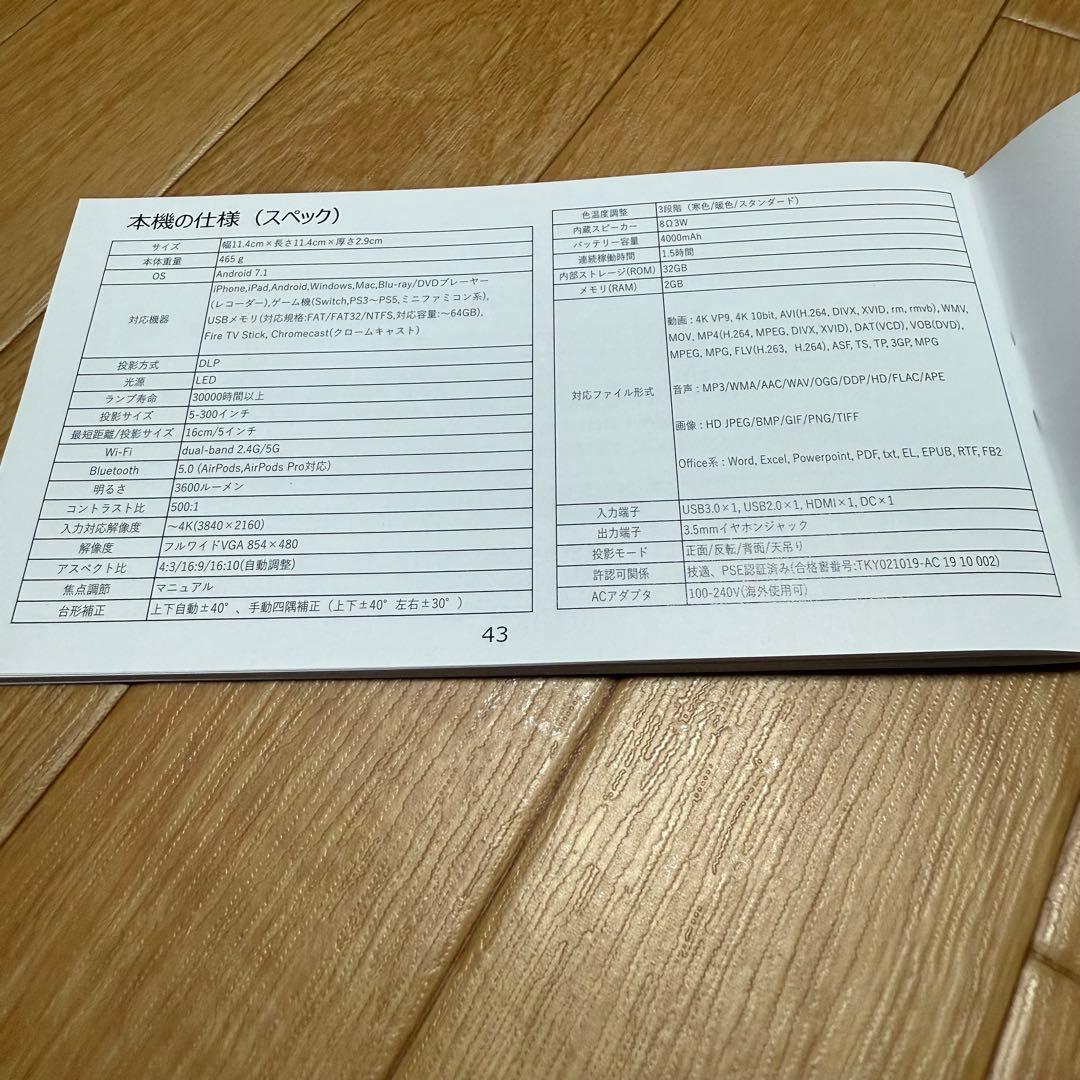 本機の仕様（スペック）
サイズ 幅11.4cm×長さ11.4cm×厚さ2.9cm
本体重量 465ｇ
OS Android 7.1
対応機器 iPhone,iPad,Android,Windows,Mac,Blu-ray/DVDプレーヤー
(レコーダー),ゲーム機(Switch,PS3～PS5,ミニファミコン系),
USBメモリ(対応規格:FAT/FAT32/NTFS,対応容量:～64GB),
Fire TV Stick, Chromecast(クロームキャスト)
投影方式 DLP
光源 LED
ランプ寿命 30000時間以上
投影サイズ 5-300インチ
最短距離/投影サイズ 16cm/5インチ
Wi-Fi dual-band 2.4G/5G
Bluetooth 5.0 (AirPods,AirPods Pro対応)
明るさ 3600ルーメン
コントラスト比 500:1
入力対応解像度 ～4K(3840×2160)
解像度 フルワイドVGA 854×480
アスペクト比 4:3/16:9/16:10(自動調整)
焦点調節 マニュアル
台形補正 上下自動±40°、手動四隅補正（上下±40° 左右±30°）
色温度調整 3段階（寒色/暖色/スタンダード）
内蔵スピーカー 8Ω3W
バッテリー容量 4000mAh
連続稼働時間 1.5時間
内部ストレージ(ROM) 32GB
メモリ(RAM) 2GB
対応ファイル形式 動画 : 4K VP9, 4K 10bit, AVI(H.264, DIVX, XVID, rm, rmvb), WMV,
MOV, MP4(H.264, MPEG, DIVX, XVID), DAT(VCD), VOB(DVD),
MPEG, MPG, FLV(H.263, H.264), ASF, TS, TP, 3GP, MPG
音声 : MP3/WMA/AAC/WAV/OGG/DDP/HD/FLAC/APE
画像 : HD JPEG/BMP/GIF/PNG/TIFF
Office系 : Word, Excel, Powerpoint, PDF, txt, EL, EPUB, RTF, FB2
入力端子 USB3.0×1, USB2.0×1, HDMI×1, DC×1
出力端子 3.5mmイヤホンジャック
投影モード 正面/反転/背面/天吊り
許認可関係 技適、PSE認証済み(合格書番号:TKY021019-AC 19 10 002)
ACアダプタ 100-240V(海外使用可)
43